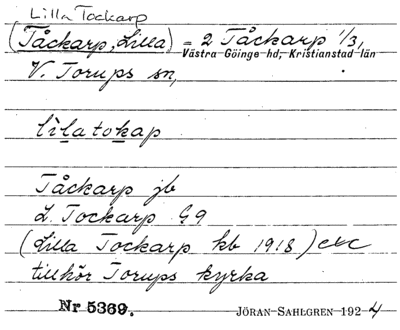 Lilla Tockarp
(Tåckarp, Lilla) = 2 Tåckarp 1/3,
Västra Göinge hd, Kristianstad län
V. Torups sn,
lìlatokap
Tåckarp jb
L. Tockarp G9
(Lilla Tockarp kb 1918) etc
tillhör Torups kyrka
Nr 5369.
JÖRAN SAHLGREN 1924